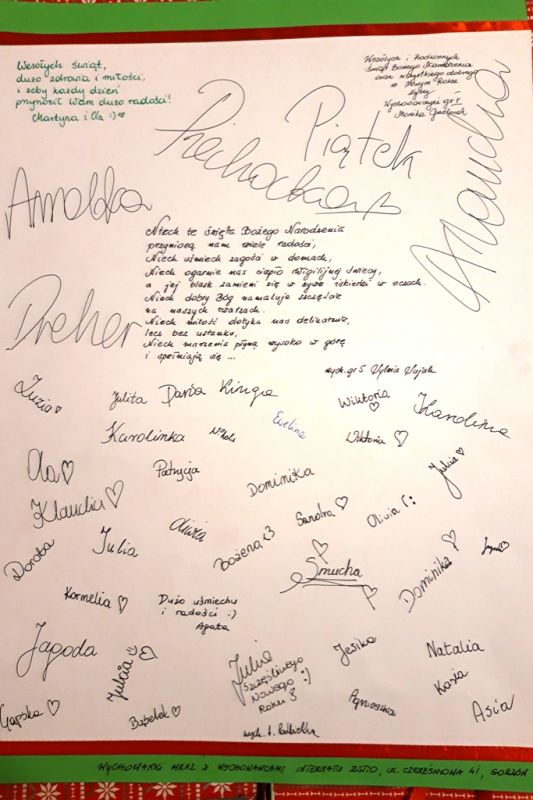 Wesołych świąt,
dużo zdrowia i miłości,
i żeby każdy dzień
przynosił Wam dużo radości!
Martyna i Ola :) ♡
Wesołych i Rodzinnych
Świąt Bożego Narodzenia
oraz wszystkiego dobrego
w Nowym Roku
życzy
Wychowawczyni gr 1
Monika
Piechocka
Piątek
Klaudia
Arnolda
Dreher
Niech te święta Bożego Narodzenia
przyniosą nam wiele radości,
Niech uśmiech zagości w domach,
Niech ogarnie nas ciepło wigilijnej świecy,
a jej blask zamieni się w żywe iskierki w oczach.
Niech dobry Bóg namaluje szczęście
na naszych twarzach.
Niech miłość dotyka nas delikatnie,
lecz bez ustanku,
Niech marzenia płyną wysoko w górę
i spełniają się ...
wych. gr 5 Sylwia
Zuzia ♡
Julita Daria Kinga
Wiktoria ♡
Karolina
Karolinka
Nikola
Ewelina
Wiktoria ♡
Ola ♡
Patrycja
Dominika
Julcia ♡
Klaudia ♡
Oliwia
Sandra ♡
Oliwia (:
Dorota
Julia
Bożena <3
Smucha
Dominika ♡
Kornelia ♡
Dużo uśmiechu
i radości :)
Agata
Jagoda
Julcia ♡
Julia
Szczęśliwego
Nowego :)
Roku
Jesika
Natalia
Kasia
Gapska ♡
Bąbelek ♡
Agnieszka
Asia
WYCHOWANKI WRAZ Z WYCHOWAWCAMI INTERNATU ZSTiO, UL. CZEREŚNIOWA 4I, GORZÓW